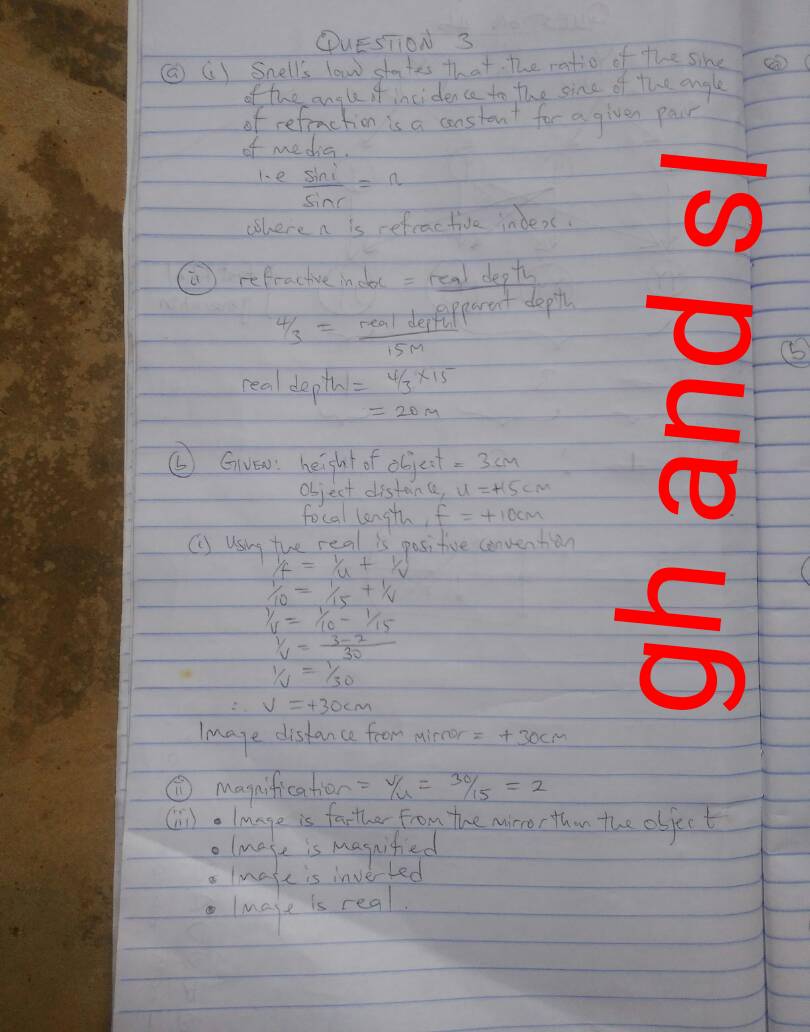 QUESTION 3
(a) (i) Snell's law states that the ratio of the sine
of the angle of incidence to the sine of the angle
of refraction is a constant for a given pair
of media.
i.e sini/sinr = n
where n is refractive index.
(ii) refractive index = real depth/apparent depth
4/3 = real depth/15m
real depth = 4/3 × 15
= 20m
(b) GIVEN: height of object = 3cm
Object distance, u = +15cm
focal length, f = +10cm
(i) Using the real is positive convention
1/f = 1/u + 1/v
1/10 = 1/15 + 1/v
1/v = 1/10 - 1/15
1/v = 3-2/30
1/v = 1/30
∴ v = +30cm
Image distance from mirror = +30cm
(ii) Magnification = v/u = 30/15 = 2
(iii) • Image is farther from the mirror than the object
• Image is magnified
• Image is inverted
• Image is real.
gh and sl
(b)